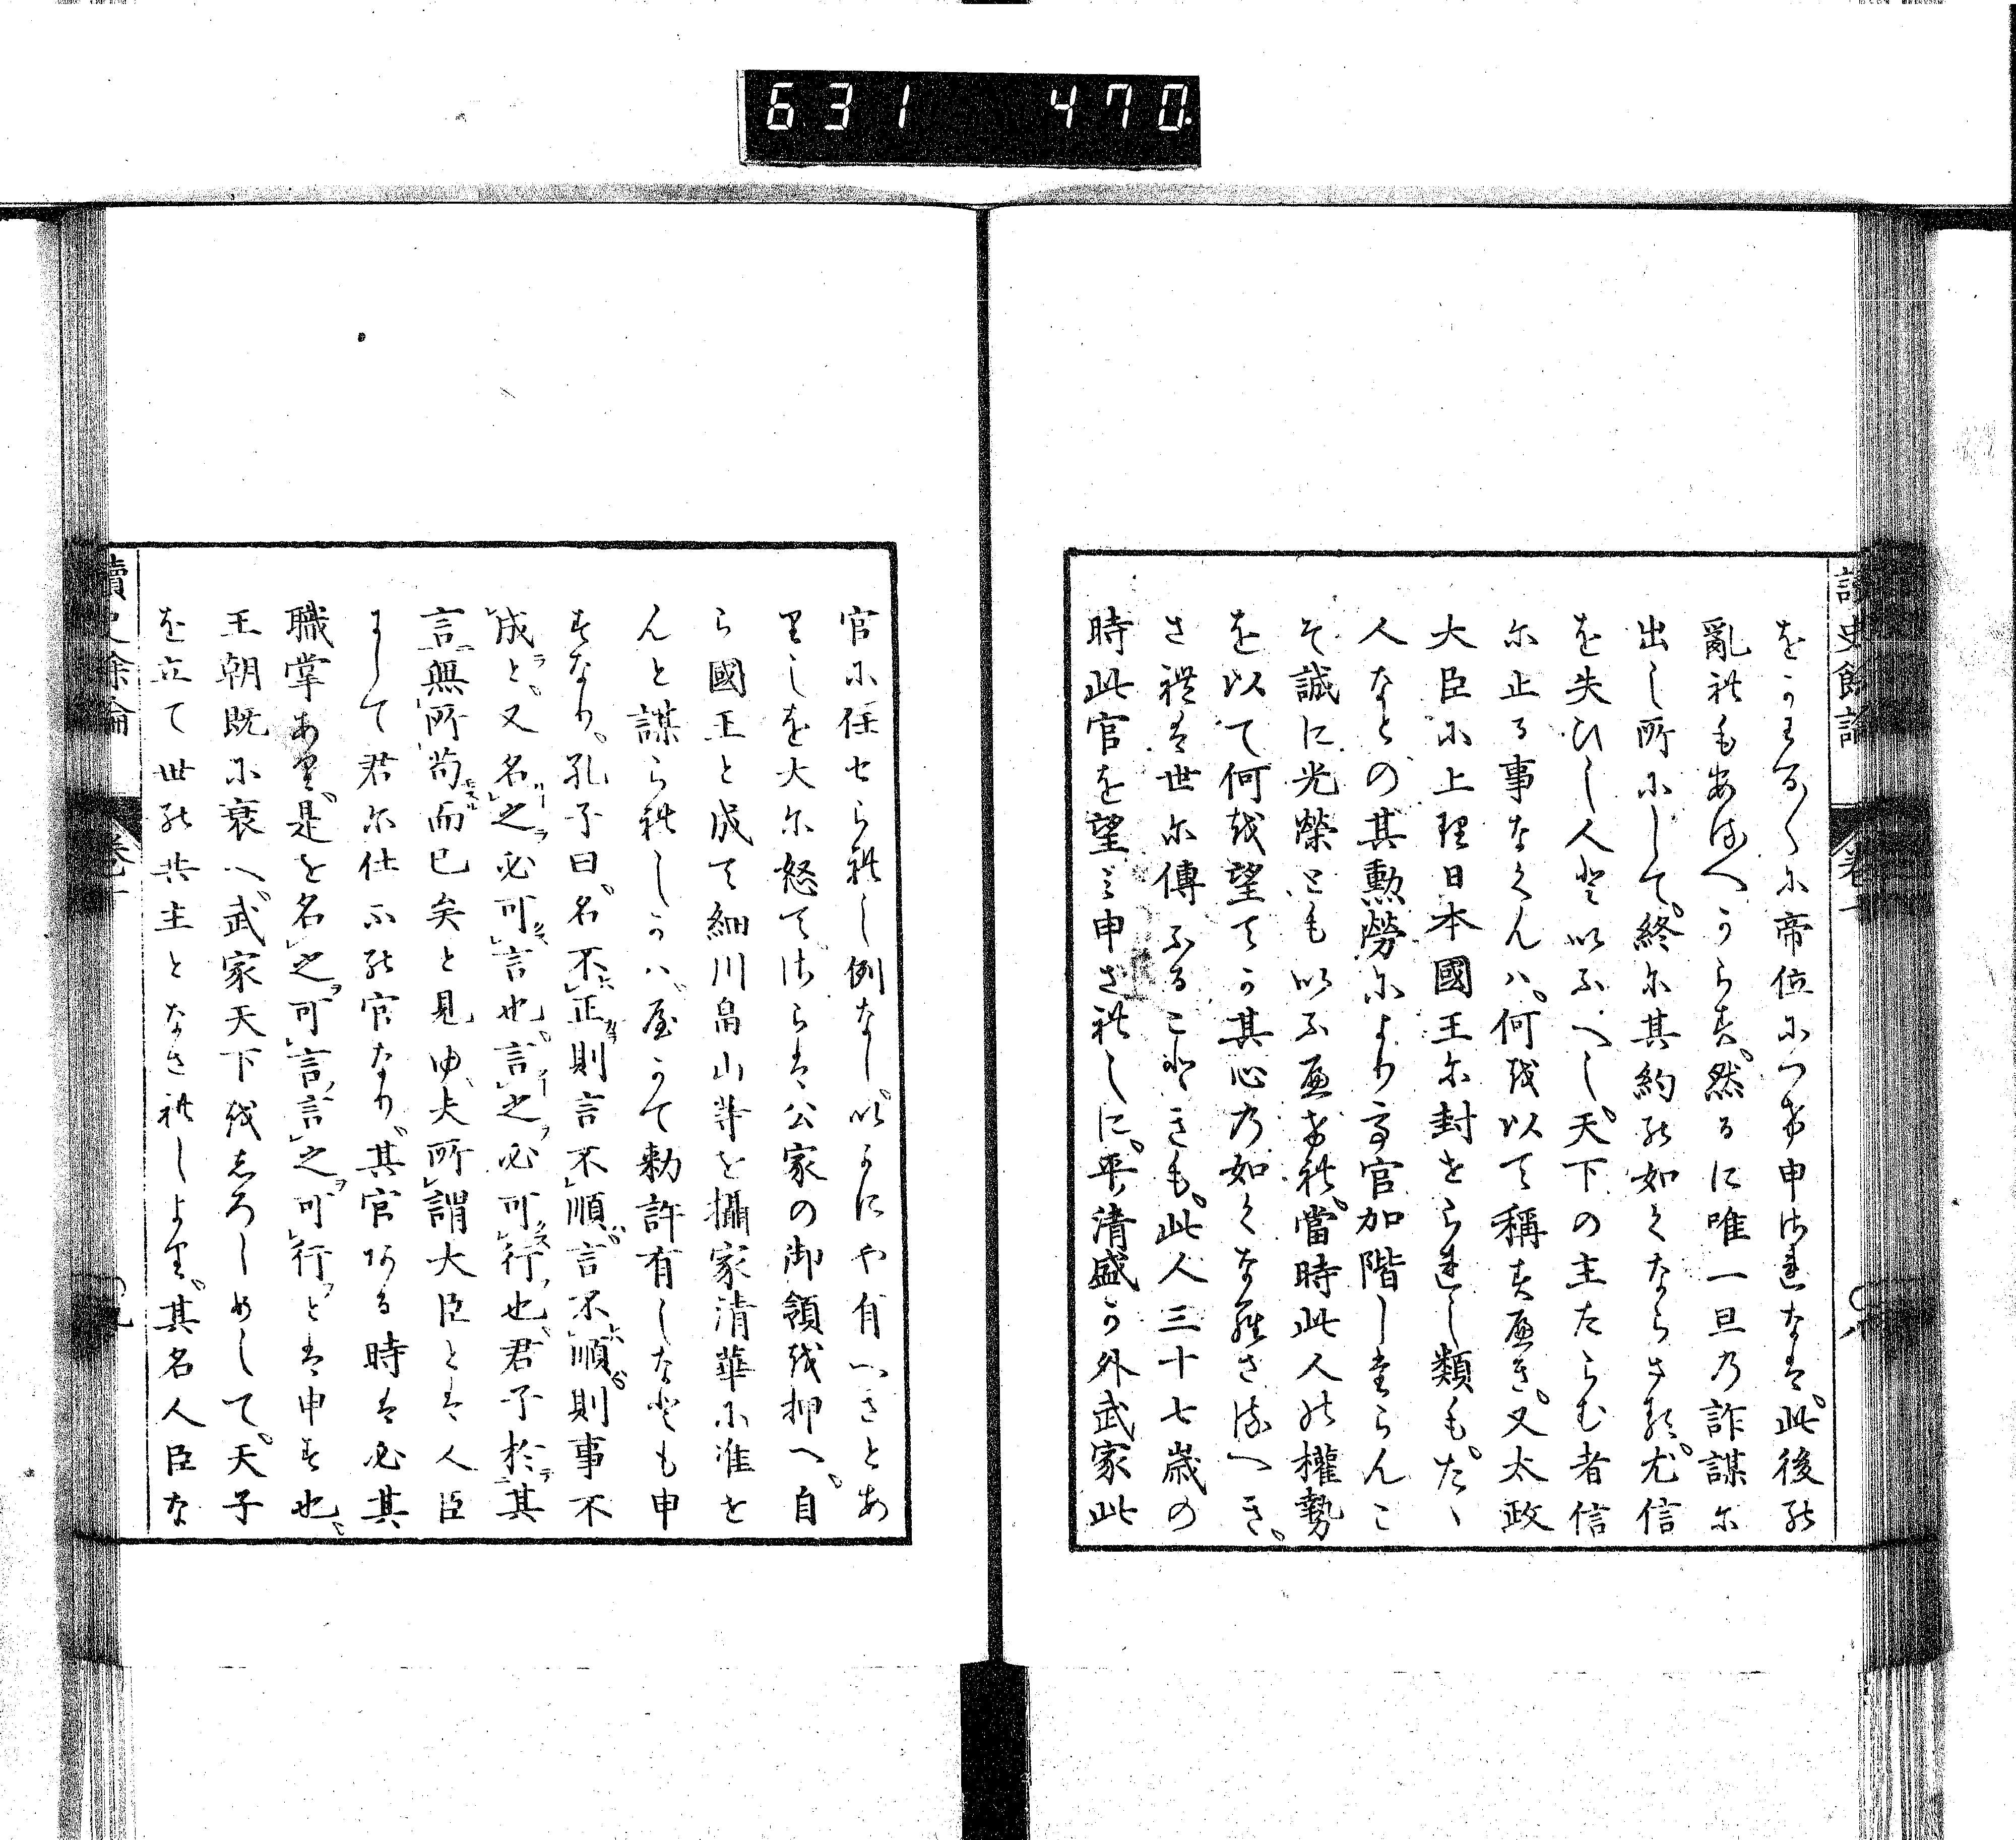 631 470
讀史餘論 卷十
をかはる〳〵に帝位につけ申されなは。此後の
亂れもあるへからす。然るに唯一旦の詐謀に
出し所にして。終に其約の如くならさる。尤信
を失ひし人といふへし。天下の主たらむ者信
に止る事なくんハ。何を以て稱すへき。又太政
大臣に上り日本國王に封せられし類も。たゝ
人なとの其勲勞により高官加階したらんこ
そ誠に光榮ともいふへけれ。當時此人の權勢
を以て何を望てか其心の如くならさるへき。
され は世に傳ふることきも。此人三十七歳の
時此官を望み申されしに。平清盛か外武家此
官に任せられし例なし。いかにや有へきとあ
りしを大に怒てさらは公家の御領を押へ。自
ら國王と成て細川畠山等を攝家清華に准せ
んと謀られしかハ。やかて勅許有しなとも申
すなり。孔子曰。名不正則言不順。言不順則事不
成と。又名之必可言也。言之必可行也。君子於其
言無所苟而已矣と見ゆ。夫所謂大臣とは人臣
にして君に仕ふの官なり。其官ある時は必其
職掌あり。是を名之可言。言之可行とは申す也。
王朝既に衰へ。武家天下をしろしめして。天子
を立て世の共主となされしより。其名人臣な
讀史餘論 卷十 九